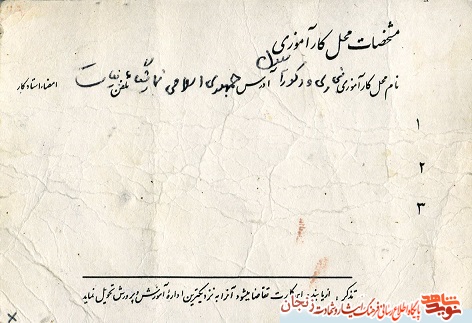 مشخصات محل کارآموزی
نام محل کارآموزی آدرس جمهوری اسلامی تلفن امضاء استاد کار
۱
۲
۳
تذکر: از یابنده این کارت تقاضا میشود آنرا به نزدیکترین اداره آموزش و پرورش تحویل نماید
نوید شاهد
پایگاه اطلاع رسانی فرهنگ ایثار و شهادت زنجان